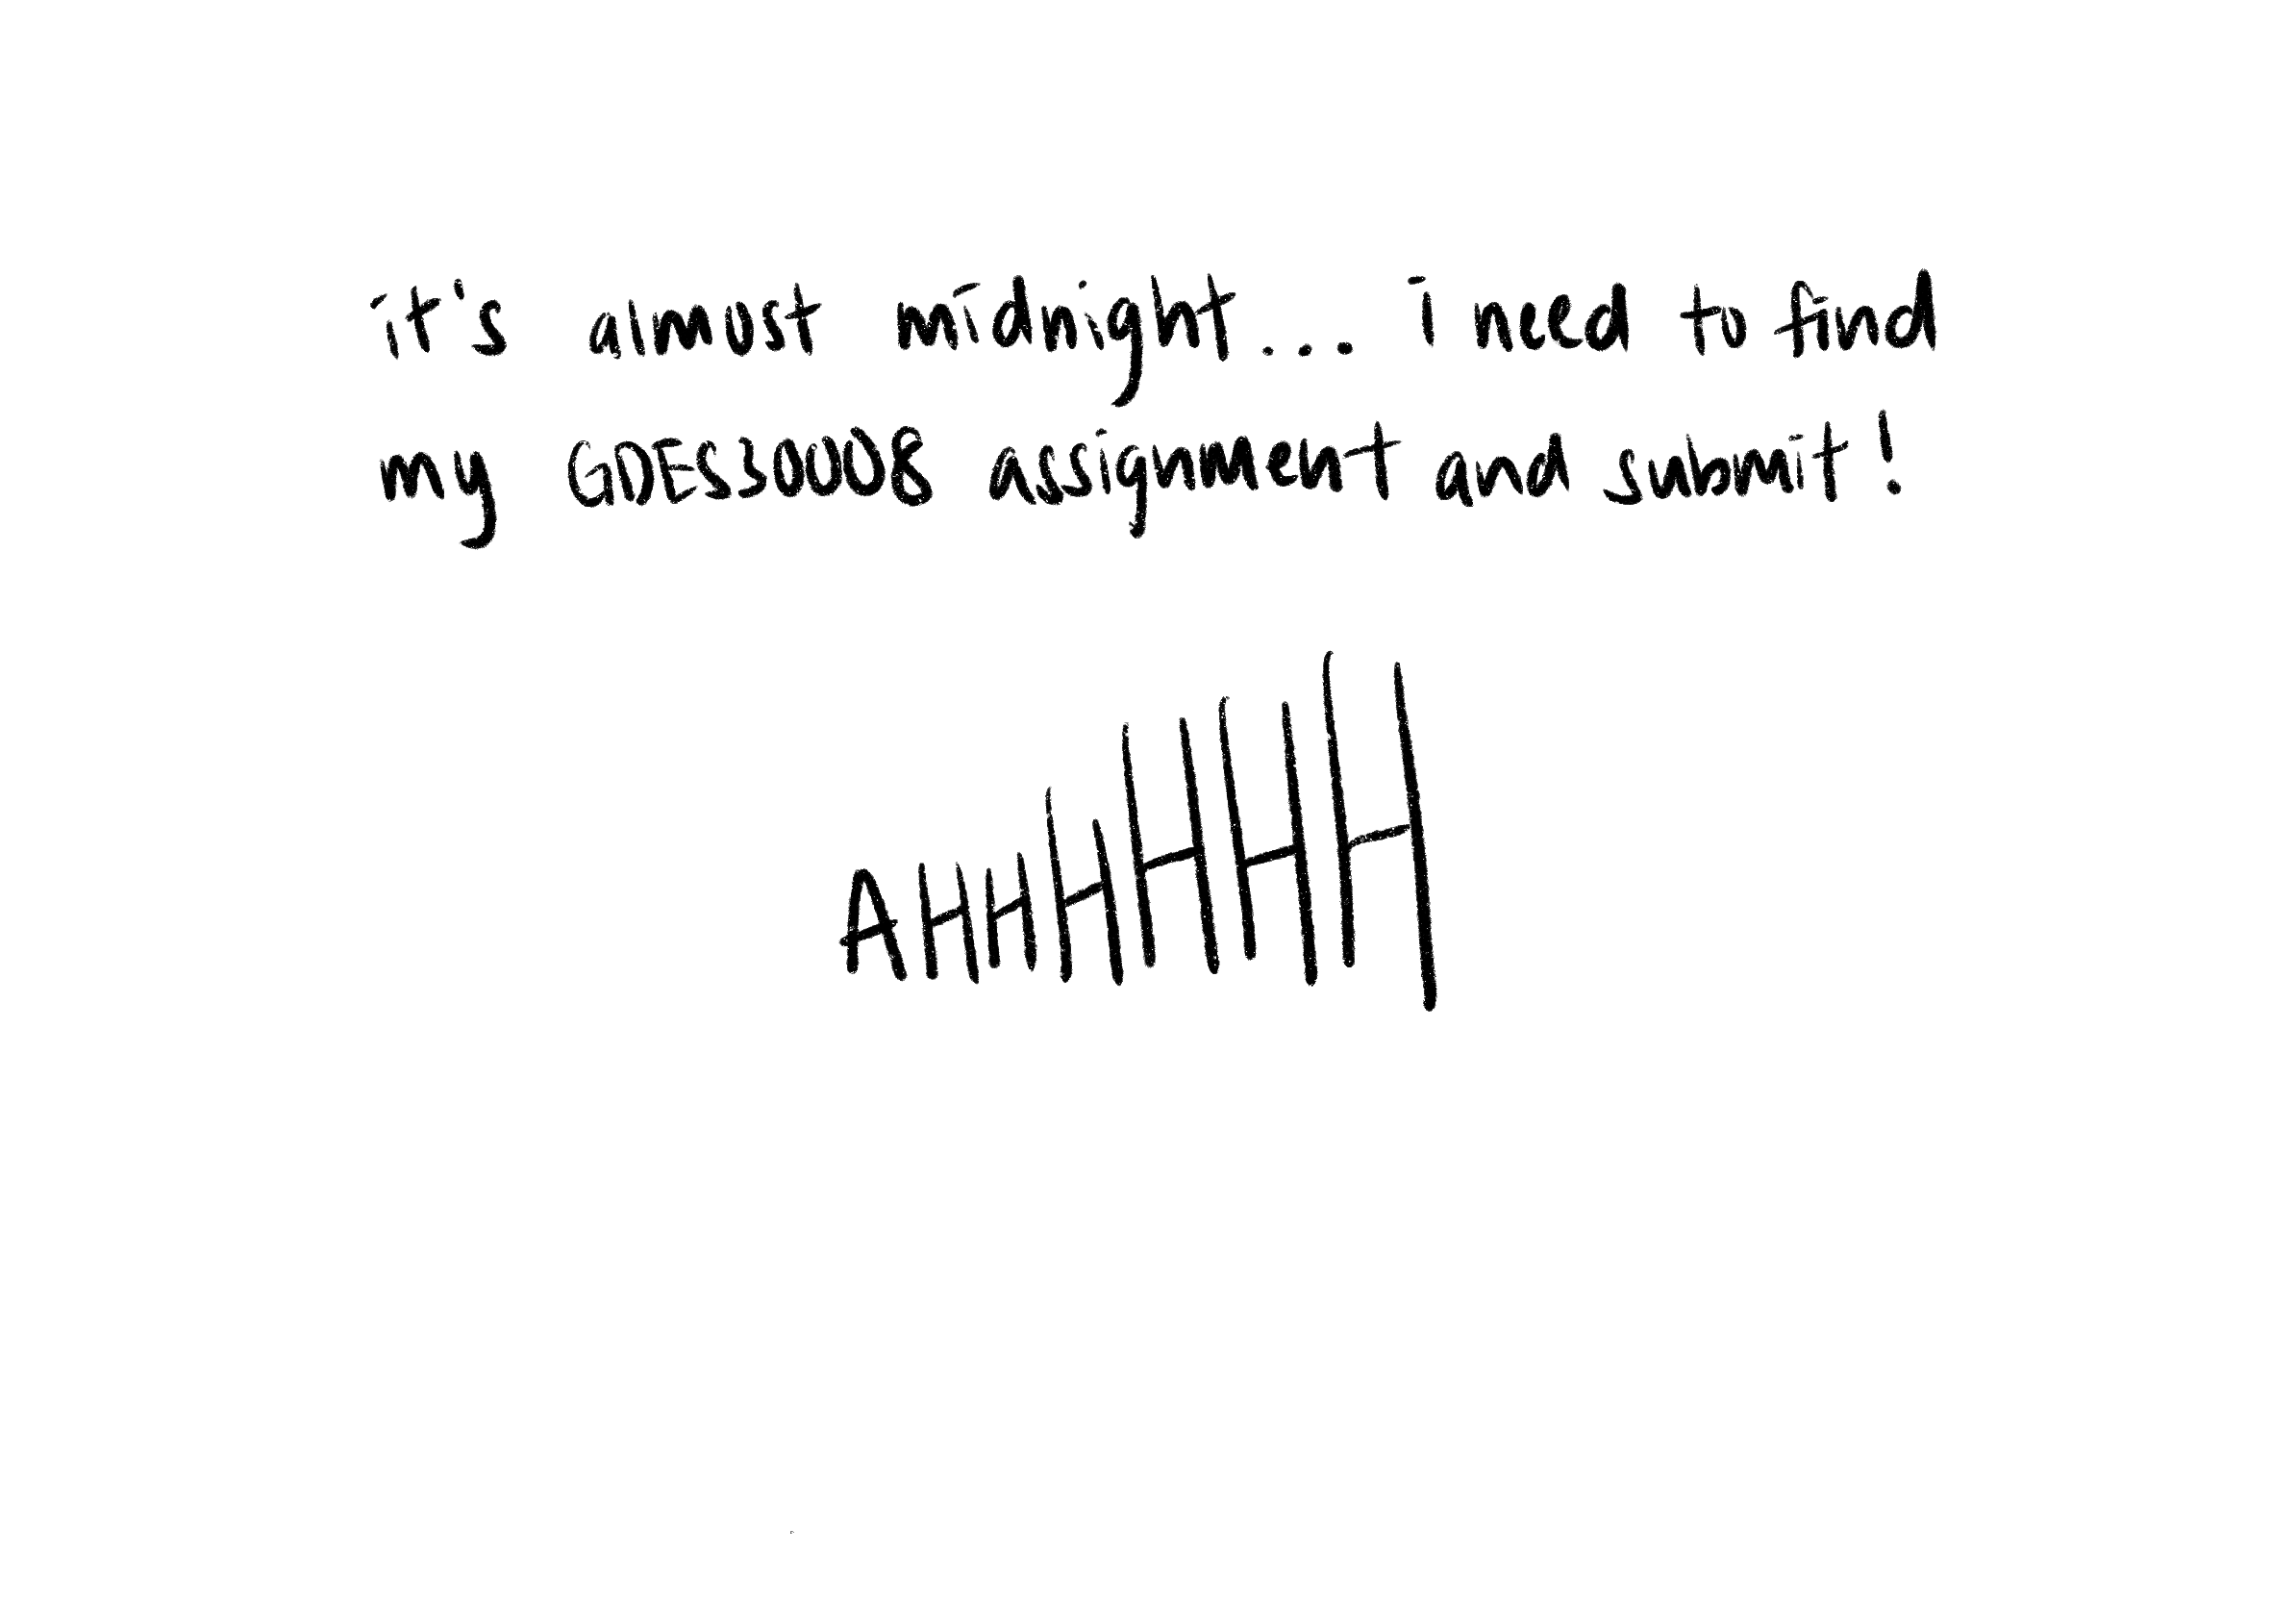 it's almost midnight... i need to find
my GDES30008 assignment and submit!
AHHHHHH